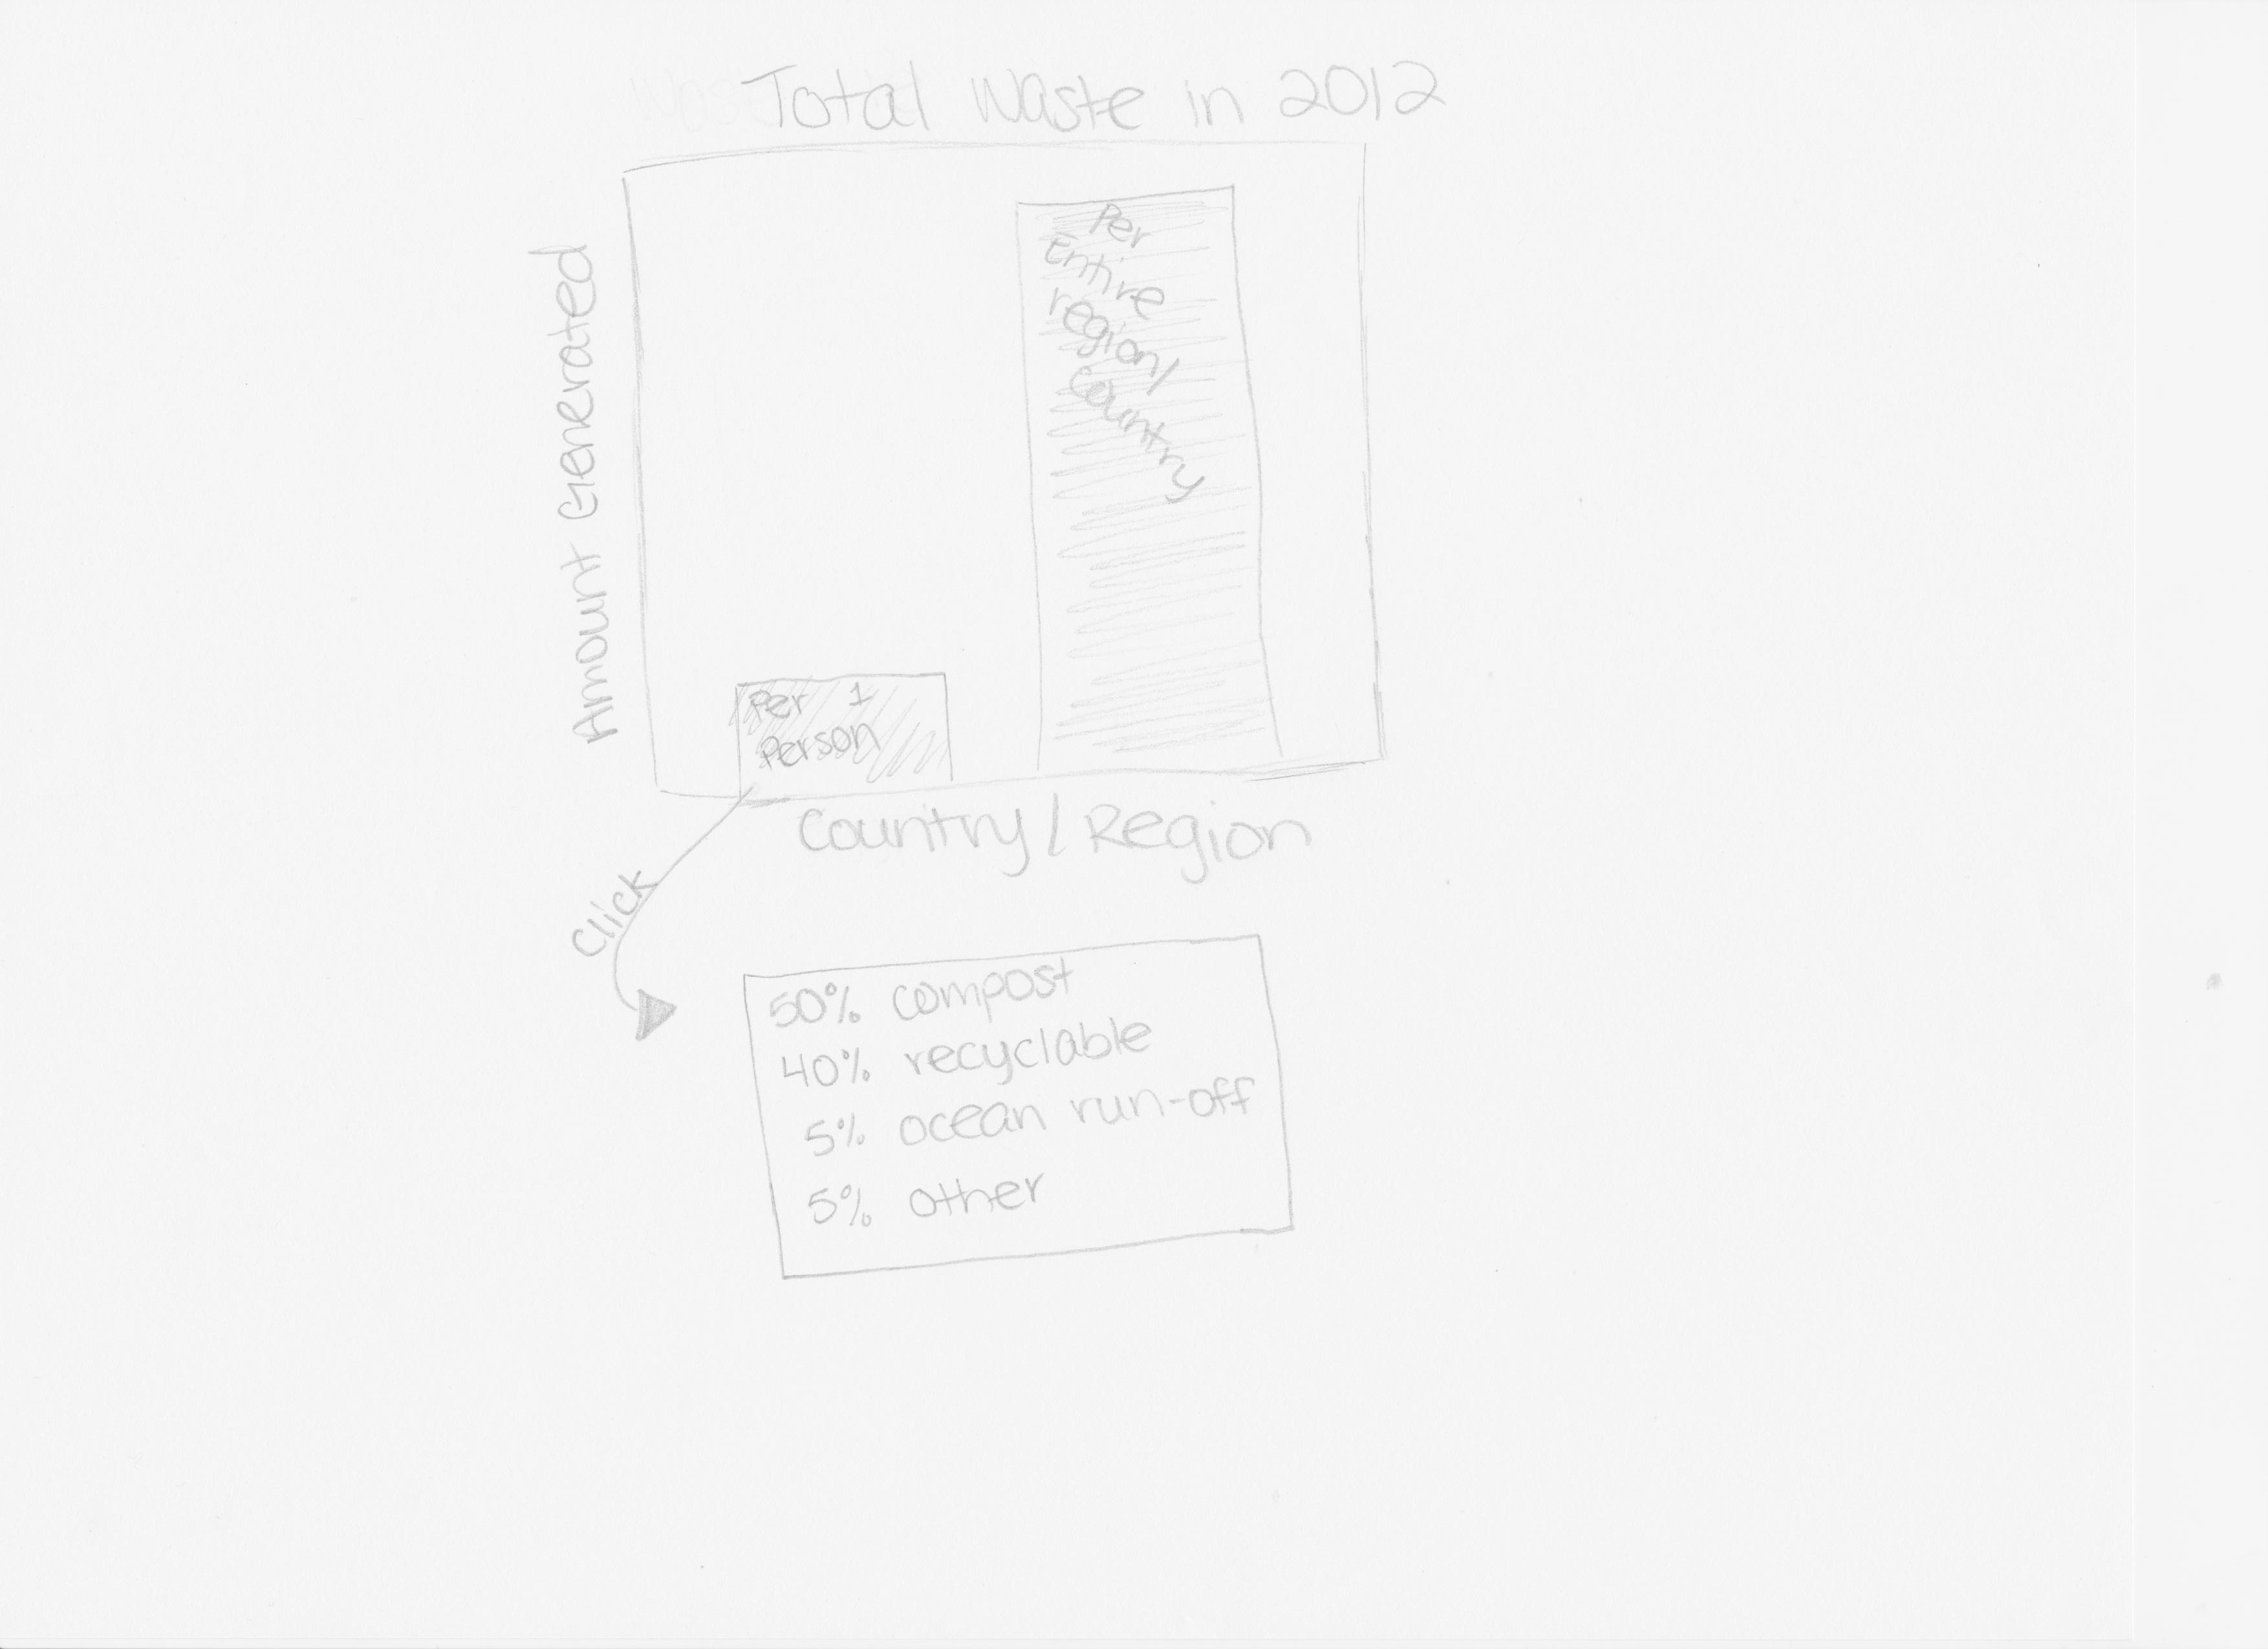 Total Waste in 2012
Amount Generated
Per
Entire
region/
Country
Per 1
Person
Country/Region
Click
50% compost
40% recyclable
5% ocean run-off
5% other